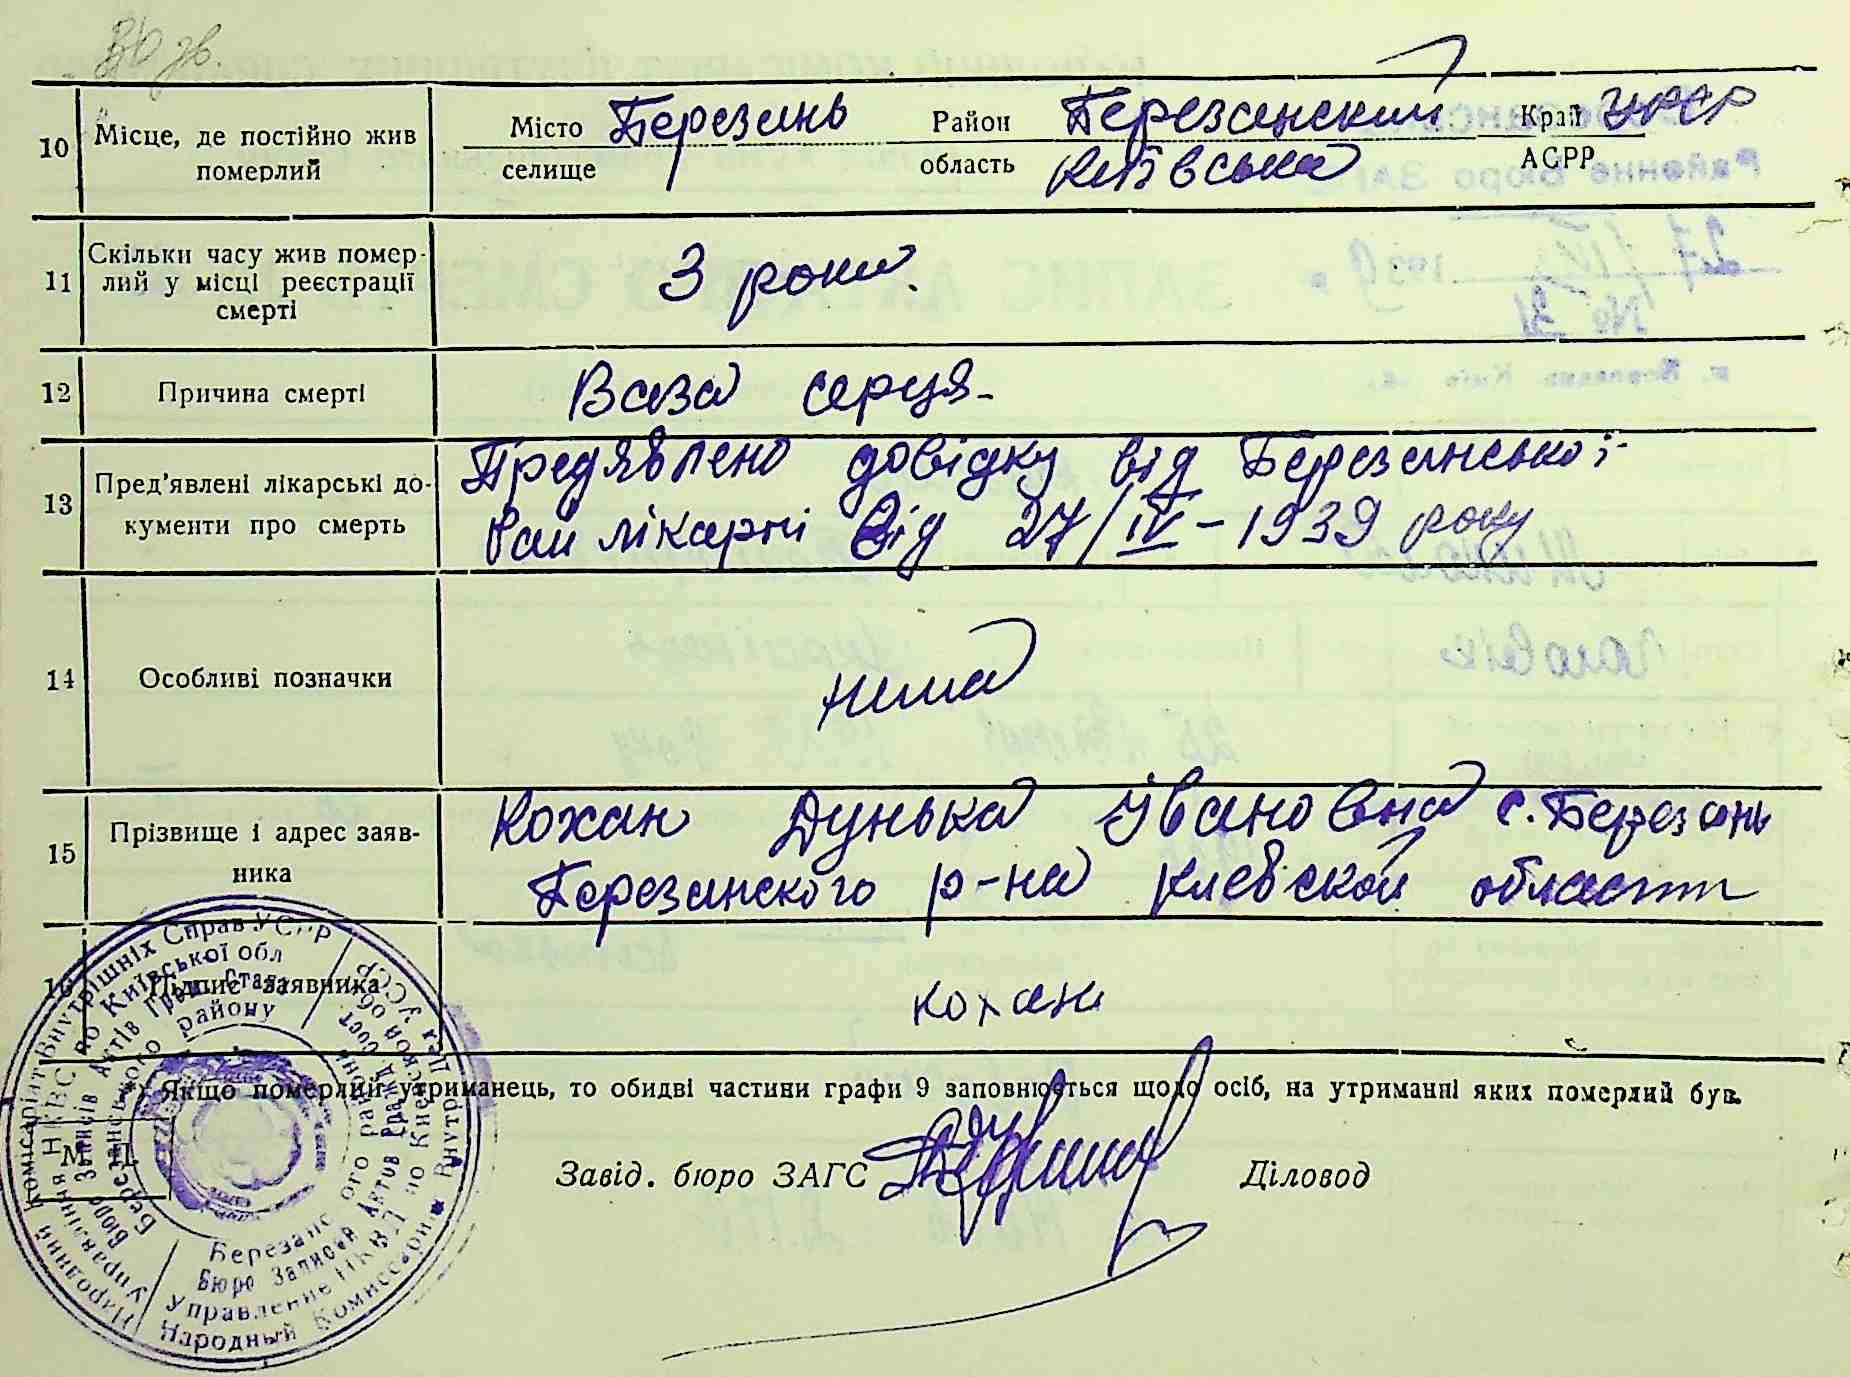 10 Місце, де постійно жив померлий
Місто Березань Район Березанский Край УРСР
селище область Київська АСРР
11 Скільки часу жив помер-
лий у місці реєстрації
смерті
3 роки.
12 Причина смерті Вада серця-
13 Пред'явлені лікарські до-
кументи про смерть
Предявлено довідку від Березанської
Рай лікарні від 27/IV-1939 року
14 Особливі позначки нима
15 Прізвище і адрес заяв-
ника
Кохан Дунька Івановна с. Березань
Березанского р-на Киевской области
16 Підпис заявника кохан
*) Якщо померлий утриманець, то обидві частини графи 9 заповнюється щодо осіб, на утриманні яких померлий був.
М П
Завід. бюро ЗАГС Діловод
Народній Комісаріят Внутрішніх Справ УСРР
Управління НКВС по Київської обл
Бюро Записів Актів Гром. Стану
Березанського району
Березанс ого района
Бюро Записей Актов Гражд. Сост
Управление НКВД по Киевской обл
Народный Комиссариат Внутр. Дел УССР